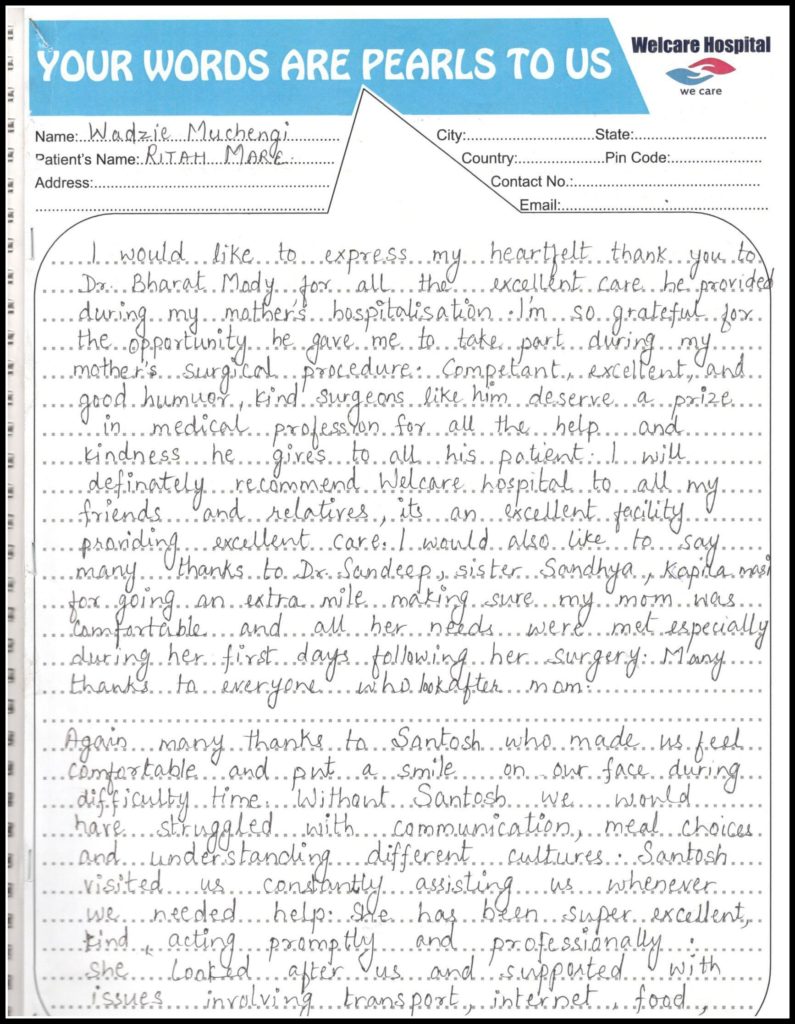 YOUR WORDS ARE PEARLS TO US
Welcare Hospital
we care
Name: Wadzie Muchengi
City: State:
Patient's Name: RITAH MARE
Country: Pin Code:
Address:
Contact No.:
Email:
I would like to express my heartfelt thank you to
Dr. Bharat Mody for all the excellent care he provided
during my mother's hospitalisation. I'm so grateful for
the opportunity he gave me to take part during my
mother's surgical procedure. Competant, excellent, and
good humuor, kind surgeons like him deserve a prize
in medical profession for all the help and
kindness he gives to all his patient. I will
definately recommend Welcare hospital to all my
friends and relatives, its an excellent facility
providing excellent care. I would also like to say
many thanks to Dr. Sandeep, sister Sandhya, Kapila masi
for going an extra mile making sure my mom was
comfortable and all her needs were met especially
during her first days following her surgery. Many
thanks to everyone who look after mom.
Again many thanks to Santosh who made us feel
comfortable and put a smile on our face during
difficulty time. Without Santosh we would
have struggled with communication, meal choices
and understanding different cultures. Santosh
visited us constantly assisting us whenever
we needed help. She has been super excellent,
kind, acting promptly and professionally.
She looked after us and supported with
issues involving transport, internet, food,